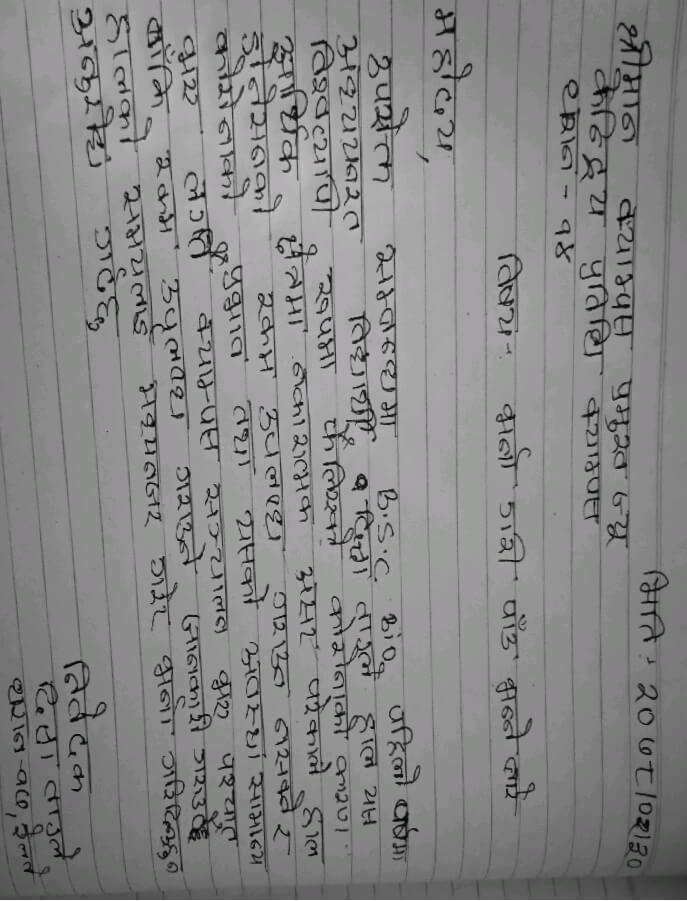 मिति: २०७८/०२/३०
श्रीमान क्याम्पस प्रमुख ज्यू
केन्द्रिय प्रविधि क्याम्पस
धरान - १४
विषय:- भर्ना गरी पाँउ भन्ने बारे
महोदय,
उपरोक्त सम्बन्धमा B.S.C. पहिलो वर्षमा
अध्ययनरत विद्यार्थी म दिपा वाउले हाल यस
विश्वव्यापि रुपमा फैलिएको कोरोनाको कारण
आर्थिक क्षेत्रमा नकारात्मक असर परेकोले हाल
रकम उपलब्ध गराउन नसक्ने र
कोरोनाको प्रभाव तथा यसको अवस्था सामान्य
भएर क्याम्पस सञ्चालन भए पश्चात्
बाँकि रकम उपलब्ध गराउने जानकारी गराउदै
हाललाई मध्यनजर गरेर भर्ना गरिदिनुहुन
अनुरोध गर्दछु
निवेदक
दिपा वाउले
धरान